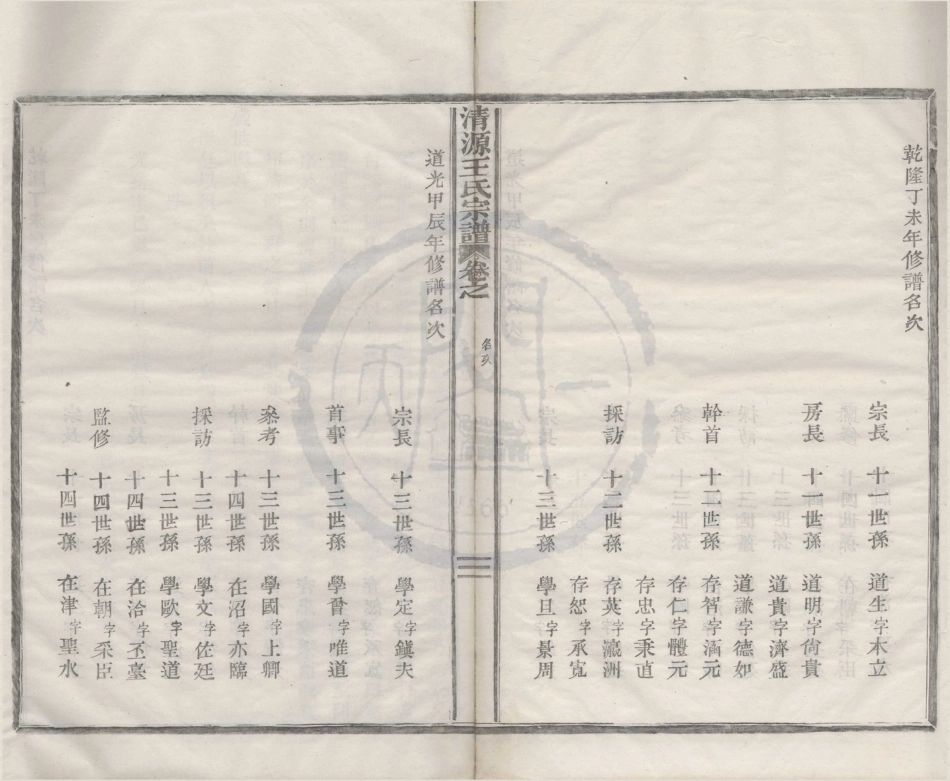 乾隆丁未年修譜名次
宗長 十一世孫 道生字木立
房長 十一世孫 道明字尙貴
道貴字濟盛
道謙字德如
幹首 十二世孫 存智字涵元
存仁字體元
存忠字秉直
採訪 十二世孫 存英字瀛洲
存恕字承寬
十三世孫 學旦字景周
清源王氏宗譜
卷之
名次
道光甲辰年修譜名次
宗長 十三世孫 學定字鎭夫
首事 十三世孫 學魯字唯道
叅考 十三世孫 學國字上卿
十四世孫 在沼字亦臨
採訪 十三世孫 學文字佐廷
十三世孫 學歐字聖道
十四世孫 在治字丕臺
監修 十四世孫 在朝字采臣
十四世孫 在津字聖水